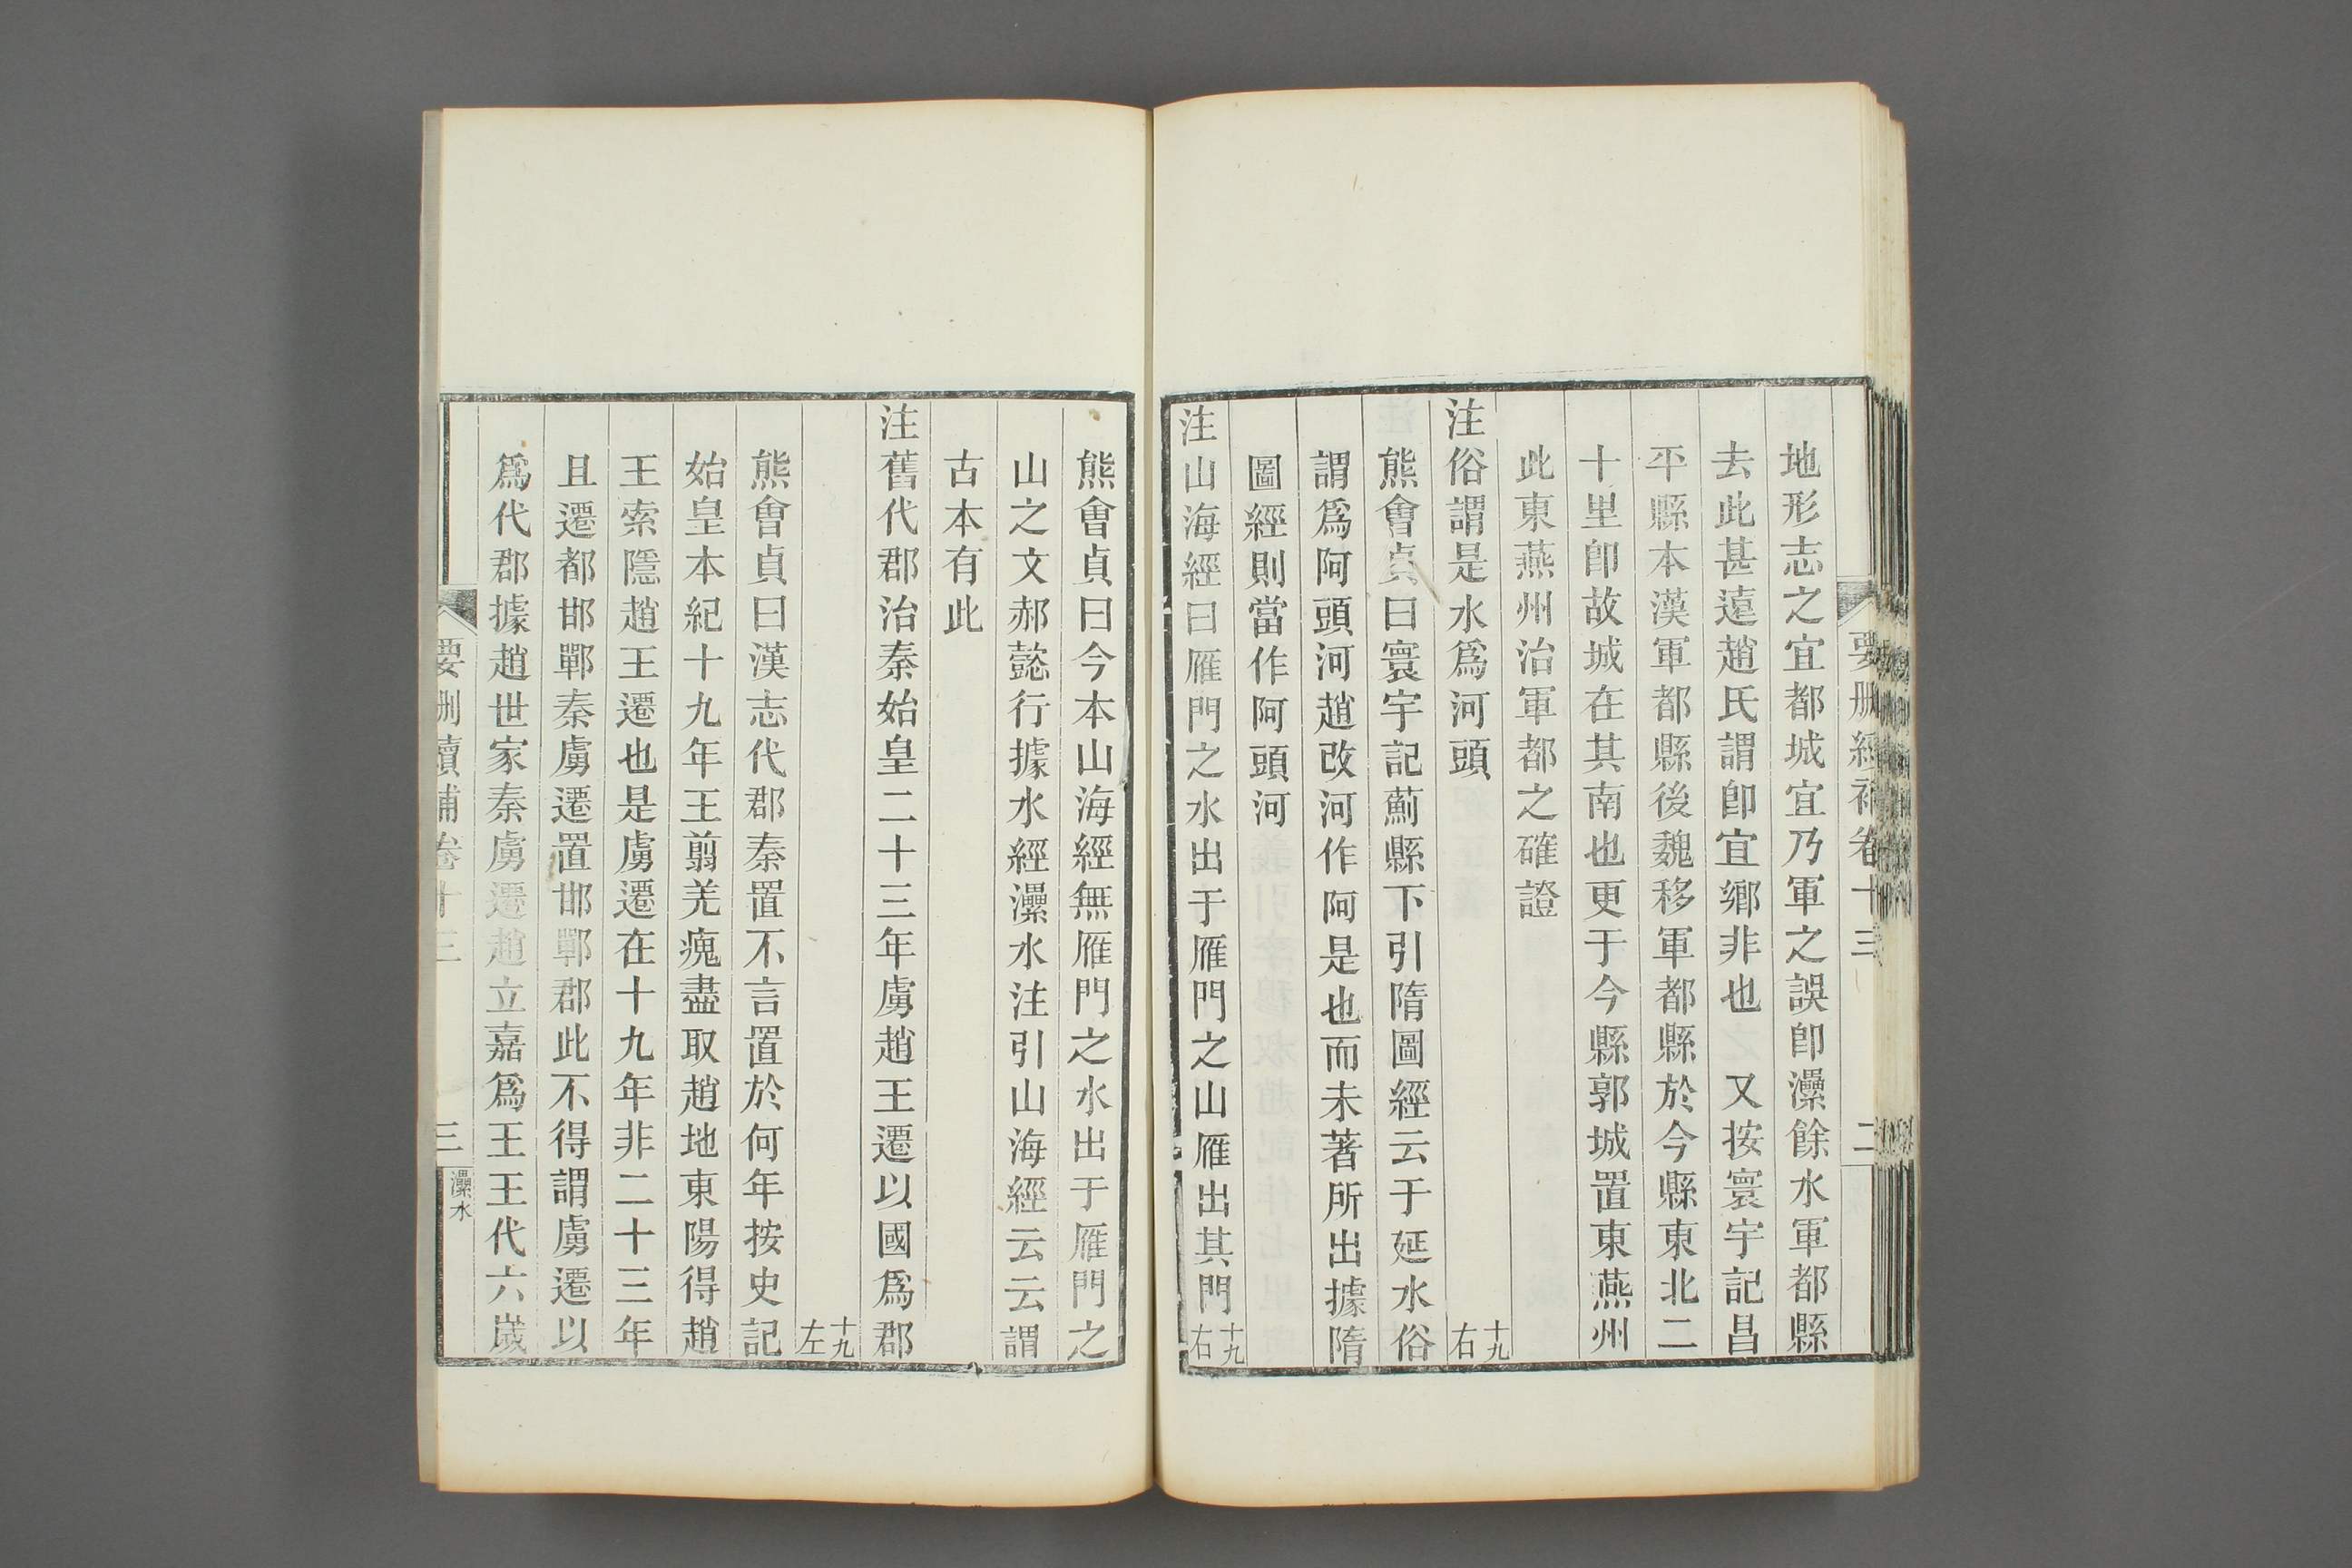 要刪續補卷十三
二
地形志之宜都城宜乃軍之誤卽㶟餘水軍都縣
去此甚遠趙氏謂卽宜鄉非也　又按寰宇記昌
平縣本漢軍都縣後魏移軍都縣於今縣東北二
十里卽故城在其南也更于今縣郭城置東燕州
此東燕州治軍都之確證
注俗謂是水爲河頭　十九右
熊會貞曰寰宇記薊縣下引隋圖經云于延水俗
謂爲阿頭河趙改河作阿是也而未著所出據隋
圖經則當作阿頭河
注山海經曰雁門之水出于雁門之山雁出其門　十九右
熊會貞曰今本山海經無雁門之水出于雁門之
山之文郝懿行據水經㶟水注引山海經云云謂
古本有此
注舊代郡治秦始皇二十三年虜趙王遷以國爲郡
十九左
熊會貞曰漢志代郡秦置不言置於何年按史記
始皇本紀十九年王翦羌瘣盡取趙地東陽得趙
王索隱趙王遷也是虜遷在十九年非二十三年
且遷都邯鄲秦虜遷置邯鄲郡此不得謂虜遷以
爲代郡據趙世家秦虜遷趙立嘉爲王王代六歲
要刪續補卷十三
三
㶟水